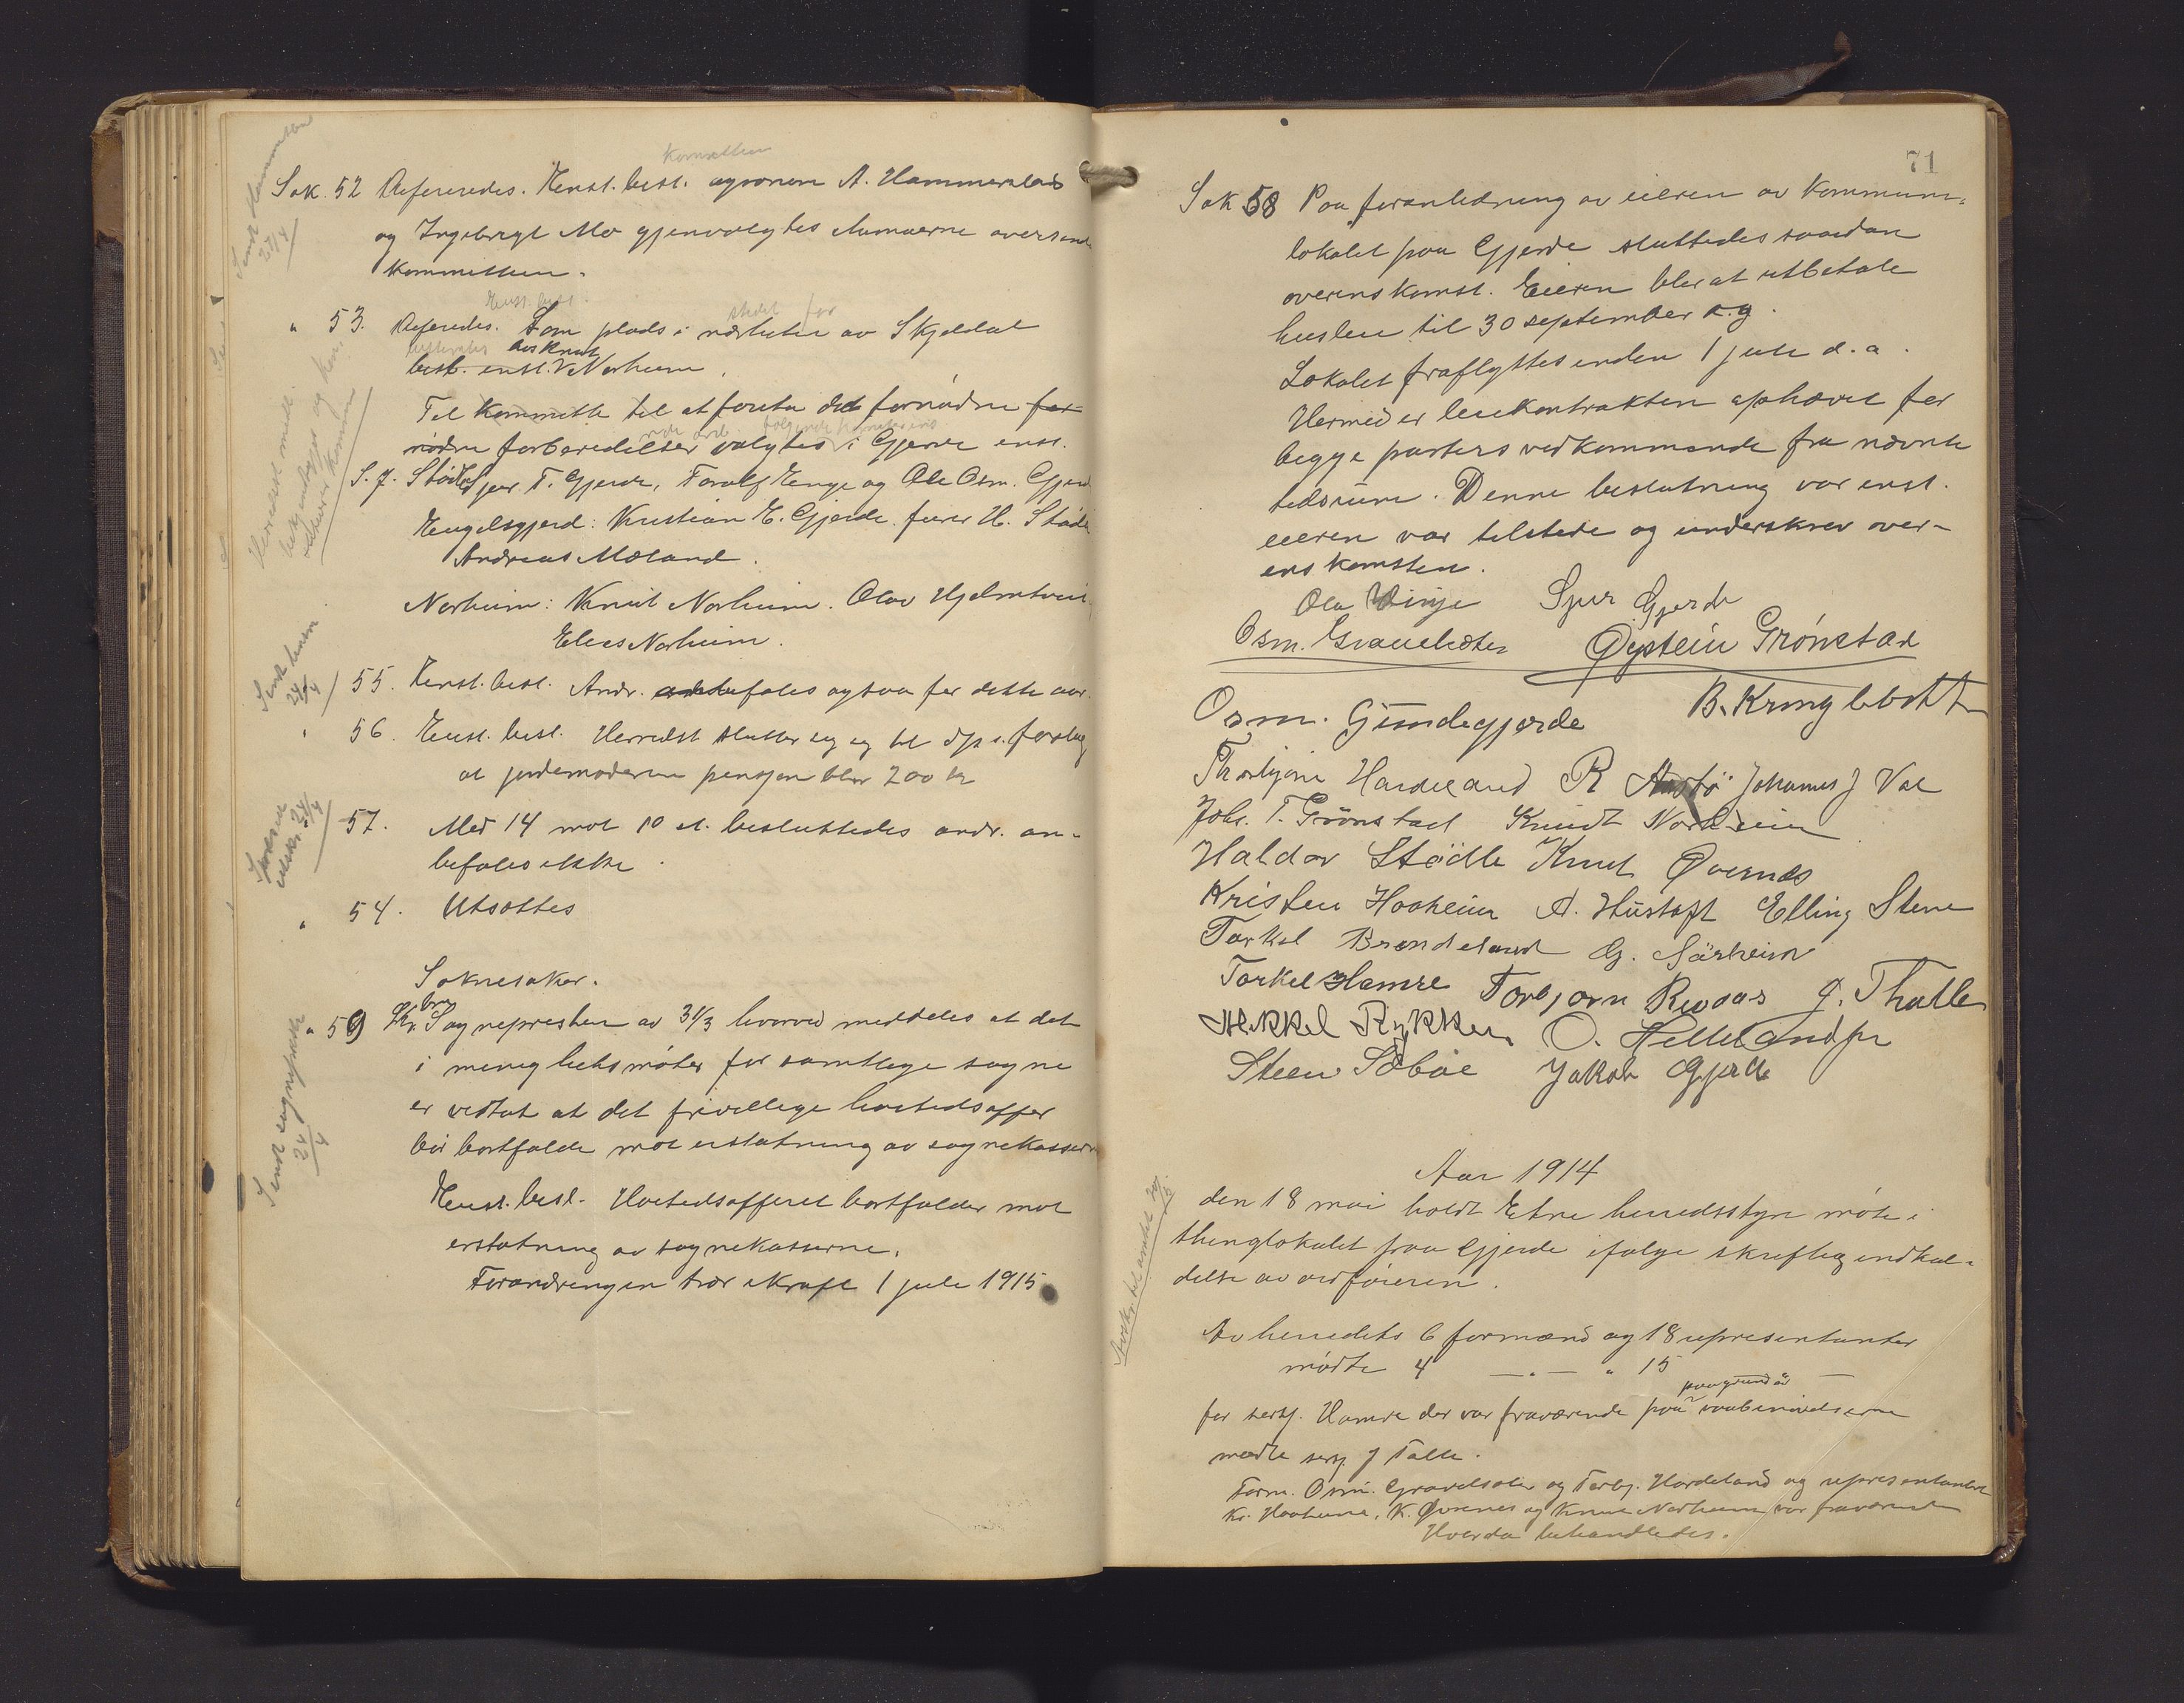 Komiteen
Sak. 52 Refereredes. Enst. besl. agronom A. Hammersland
og Ingebrigt Mo gjenvalgtes
Kommitteen.
Enst. besl. stedet for
" 53. Refereredes. Som plads i nærheten av Skjeldal
besl. enst. Norheim.
Til Kommitte til at foreta det fornødne for-
nødne forberedelser valgtes i Gjerde enst.
S. J. Stødle Sjur T. Gjerde, Toralf Enge og Ole Osm. Gjerde
Engelsgjerd: Kristian E. Gjerde. H. Stødle
Andreas Mæland.
Norheim: Knut Norheim. Olav Hjelmtveit
Elias Norheim.
55. Enst. besl. Andr. anbefales ogsaa for dette aar.
" 56. Enst. besl. Herredst. slutter sig til forslag
at jordemoderens pensjon blir 200 kr
" 57. Med 14 mot 10 st. besluttedes andr. an-
befales ikke.
" 54. Utsættes
Soknesaker.
" 59 Kr. brev Sognepresten av 31/3 hvorved meddeles at det
i menighetsmøter for samtlige sogne
er vedtat at det frivillige høitidsoffer
bør bortfalde mot erstatning av sognekasserne
Enst. besl. Høitidsofferet bortfalder mot
erstatning av sognekasserne.
Forandringen trær i kraft 1 juli 1915
Sendt Hammersland
24/4
Sendt
24/4
24/4
Sendt sognepresten
24/4
71
Sak 58 Paa foranledning av eieren av Kommune-
lokalet paa Gjerde sluttedes saadan
overenskomst. Eieren blir at utbetale
husleie til 30 september d. a.
Lokalet fraflyttes inden 1 juli d. a.
Hermed er leiekontrakten ophævet for
begge parters vedkommende fra nævnte
tidsrum. Denne beslutning var enst.
eieren var tilstede og underskrev over-
enskomsten.
Ola Vinje Sjur Gjerde
Osm. Øystein Grønstad
Osm. Grindegjærde B. Kringlebotn
Thorbjørn Hardeland R Austbö Johannes J Vae
Johs. T. Grönstad Knudt Nordheim
Haldor Stödle Knut Øvernes
Kristen Haaheim A. Hustoft Elling Stene
Torkel Brendeland G. Särheim
Torkel Hamre Torbjørn Revaas J. Thalle
Mikkel Rykken O. Helleland jr
Steen Sæbøe Jakob Gjerde
Aar 1914
den 18 mai holdt Etne herredsstyre møte i
thinglokalet paa Gjerde ifølge skriftlig indkal-
delse av ordføreren.
Av herredets 6 formænd og 18 representanter
mødte 4 — " — " 15 —
paagrund av
for serg. Hamre der var fraværende paa vaabenøvelserne
mødte serg. J Talle.
Form. Osm. og Torbj. Hardeland og representanterne
Kr. Haaheim, K. Øvernes og Knut Norheim var fraværende
Hvorda behandledes.